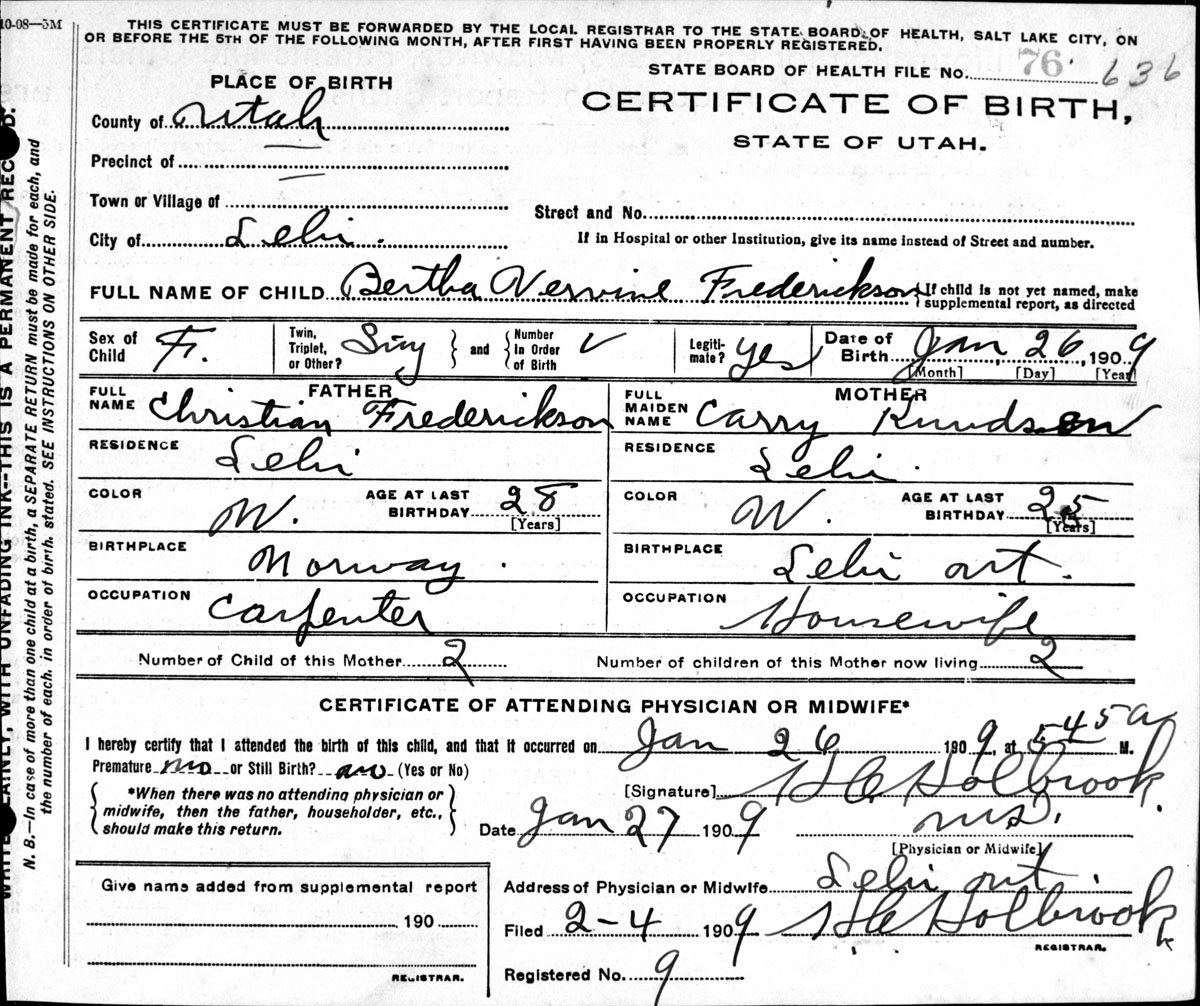 10-08—5M
THIS CERTIFICATE MUST BE FORWARDED BY THE LOCAL REGISTRAR TO THE STATE BOARD OF HEALTH, SALT LAKE CITY, ON
OR BEFORE THE 5TH OF THE FOLLOWING MONTH, AFTER FIRST HAVING BEEN PROPERLY REGISTERED.
STATE BOARD OF HEALTH FILE No. 76 636
PLACE OF BIRTH
CERTIFICATE OF BIRTH,
STATE OF UTAH.
County of Utah
Precinct of
Town or Village of
Street and No.
City of Lehi.
If in Hospital or other Institution, give its name instead of Street and number.
FULL NAME OF CHILD Bertha Vervine Frederickson
If child is not yet named, make
supplemental report, as directed
Sex of Child F.
Twin, Triplet, or Other? Sing and Number In Order of Birth
Legiti-mate? yes
Date of Birth Jan 26, 1909
[Month] [Day] [Year]
FATHER
FULL NAME Christian Frederickson
MOTHER
FULL MAIDEN NAME Carry Knudsen
RESIDENCE Lehi
RESIDENCE Lehi.
COLOR W. AGE AT LAST BIRTHDAY 28 [Years]
COLOR W. AGE AT LAST BIRTHDAY 25 [Years]
BIRTHPLACE Norway.
BIRTHPLACE Lehi Ut.
OCCUPATION Carpenter
OCCUPATION Housewife
Number of Child of this Mother 2
Number of children of this Mother now living 2
CERTIFICATE OF ATTENDING PHYSICIAN OR MIDWIFE*
I hereby certify that I attended the birth of this child, and that it occurred on Jan 26 1909, at 545 a M.
Premature no or Still Birth? no (Yes or No)
*When there was no attending physician or
midwife, then the father, householder, etc.,
should make this return.
[Signature] H C Holbrook.
M.D.
Date Jan 27 1909
[Physician or Midwife]
Give name added from supplemental report
190
REGISTRAR.
Address of Physician or Midwife Lehi Ut.
Filed 2-4 1909 H C Holbrook
REGISTRAR.
Registered No. 9
WITH UNFADING INK—THIS IS A PERMANENT
N. B.—In case of more than one child at a birth, a SEPARATE RETURN must be made for each, and
the number of each, in order of birth, stated. SEE INSTRUCTIONS ON OTHER SIDE.